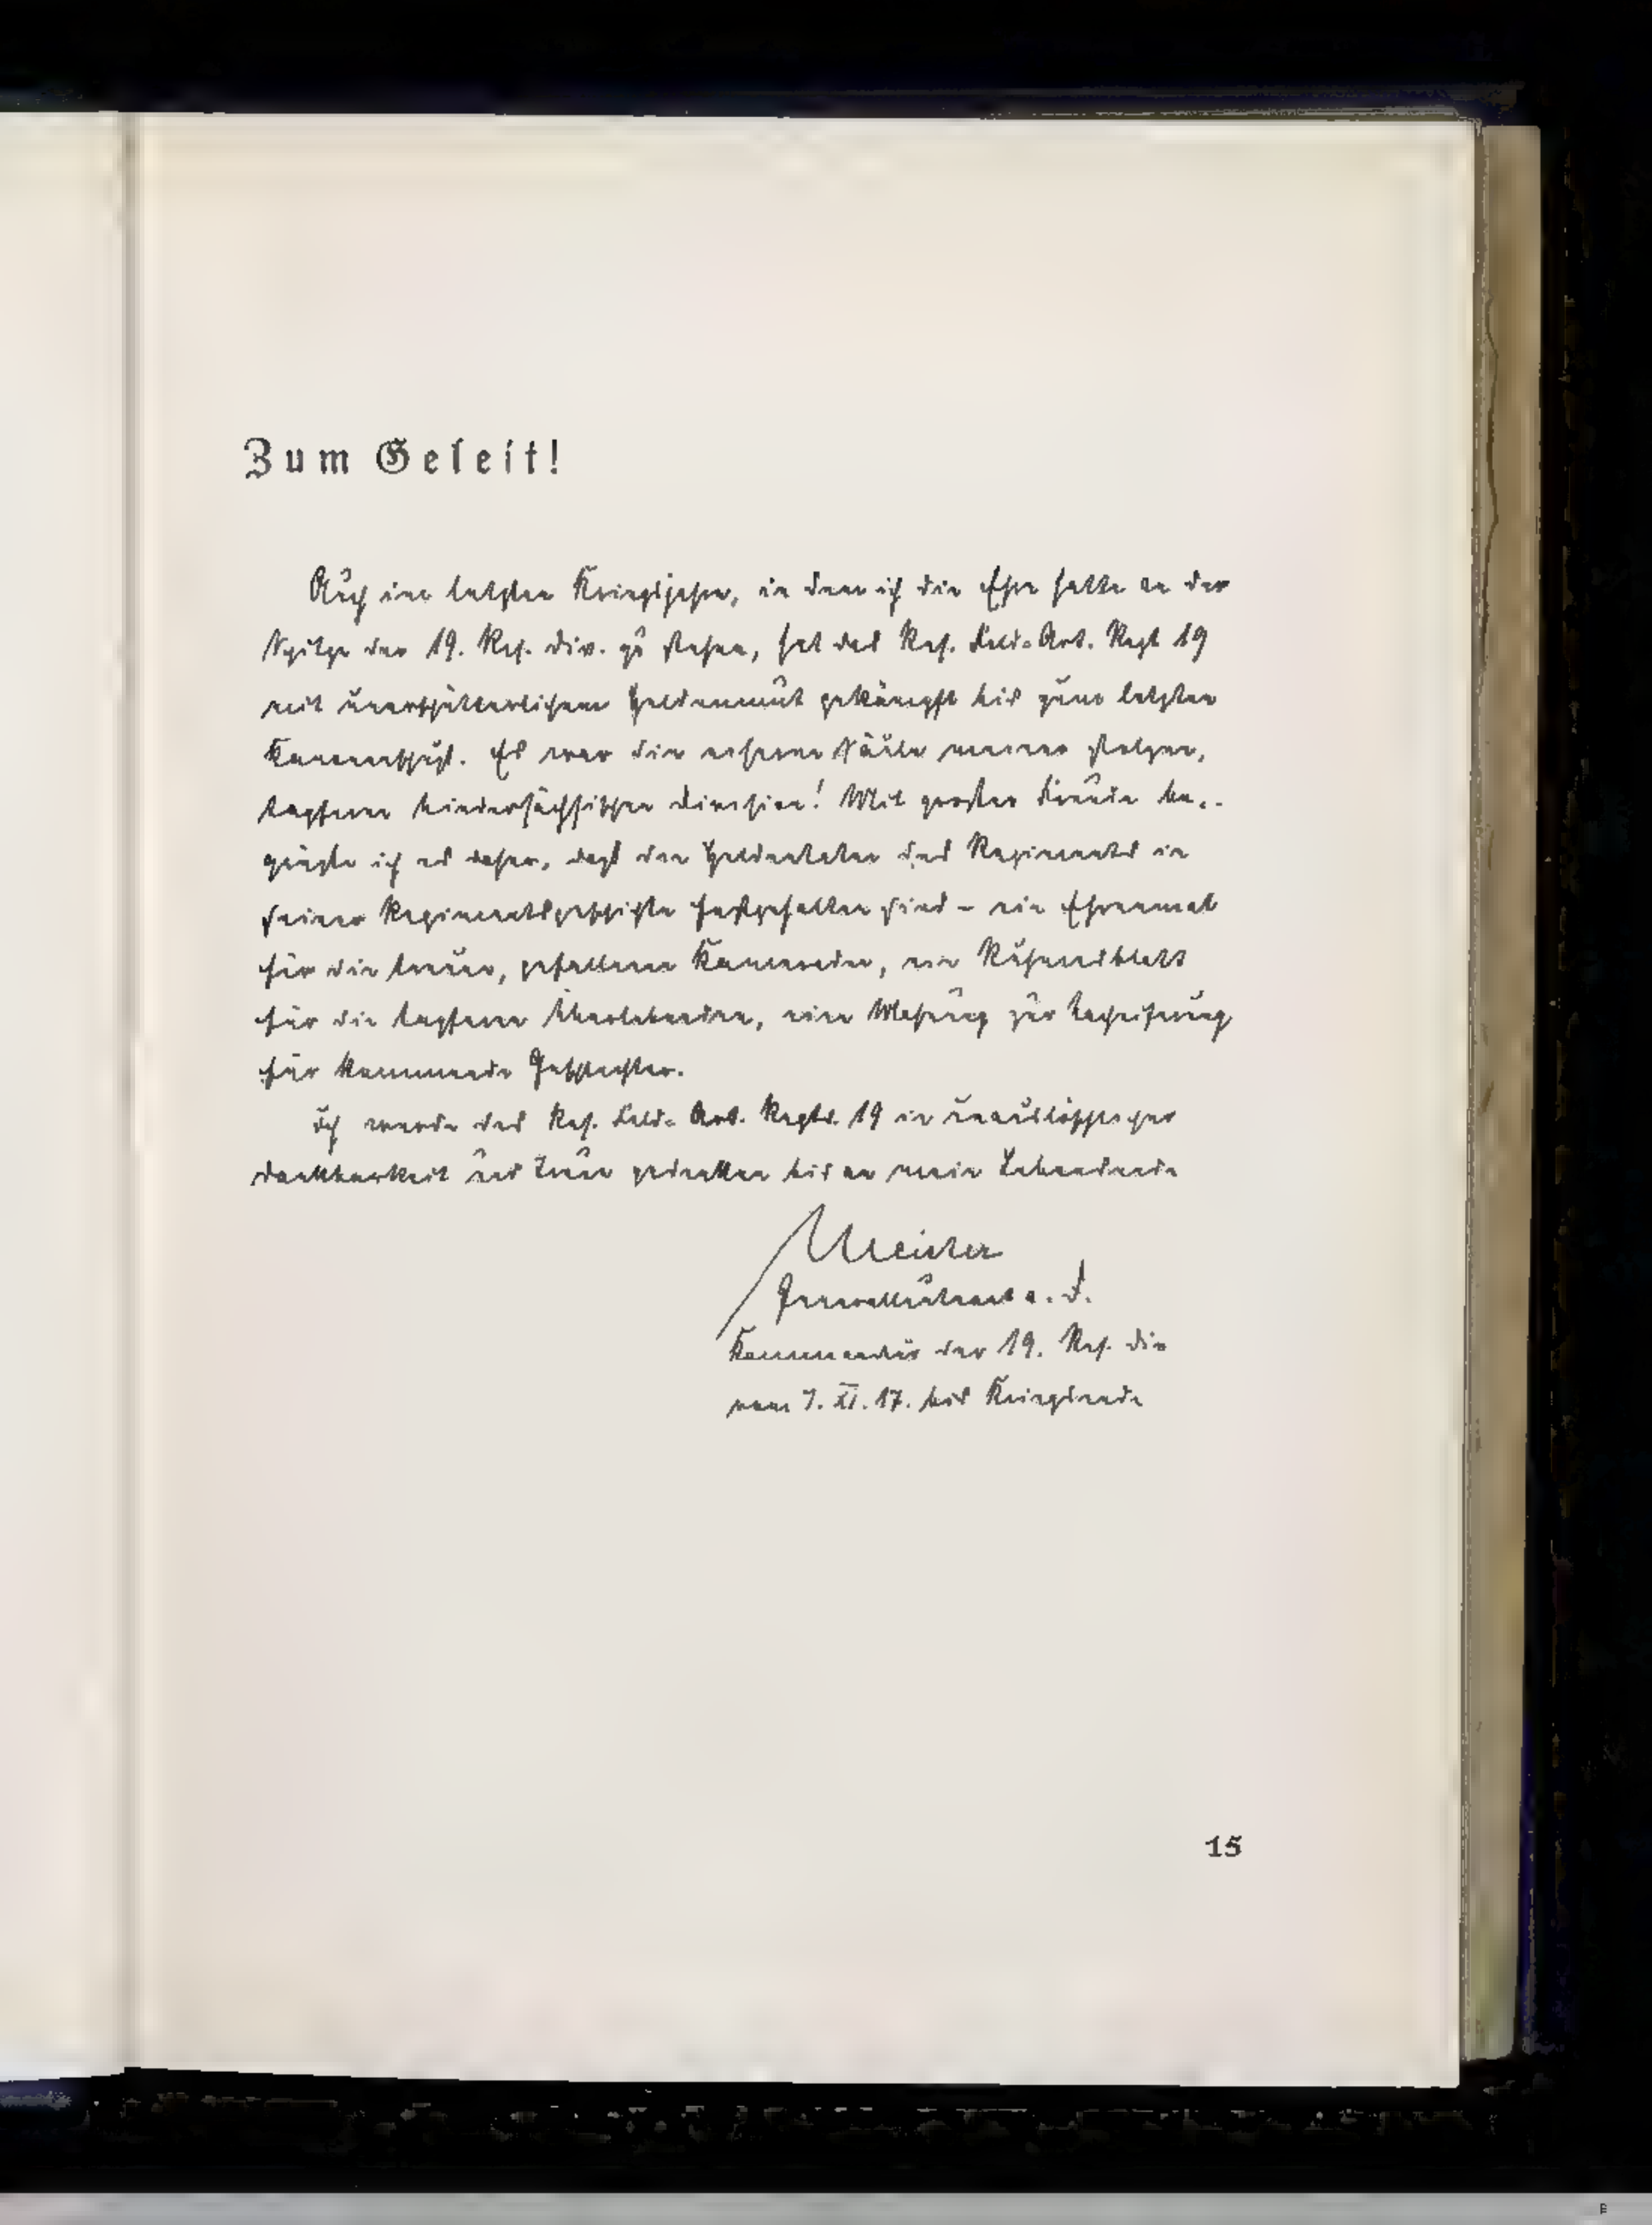 Zum Geleit!
Auch im letzten Kriegsjahre, in dem ich die Ehre hatte an der
Spitze der 19. Res. Div. zu stehen, hat das Res. Feld-Art. Regt 19
mit unerschütterlichem Heldenmut gekämpft bis zum letzten
Kanonenschuß. Es war die eherne Säule meiner stolzen,
tapferen niedersächsischen Division! Mit großer Freude be-
grüßte ich es daher, daß die Heldentaten des Regiments in
seiner Regimentsgeschichte festgehalten sind - ein Ehrenmal
für die treuen, gefallenen Kameraden, ein Ruhmesblatt
für die tapferen Überlebenden, eine Mahnung zur Nacheiferung
für kommende Geschlechter.
Ich werde des Res. Feld-Art. Regts. 19 in unauslöschlicher
Dankbarkeit und Treue gedenken bis an mein Lebensende
Meister
Generalleutnant a. D.
Kommandeur der 19. Res. Div
vom 7. XI. 17. bis Kriegsende
15